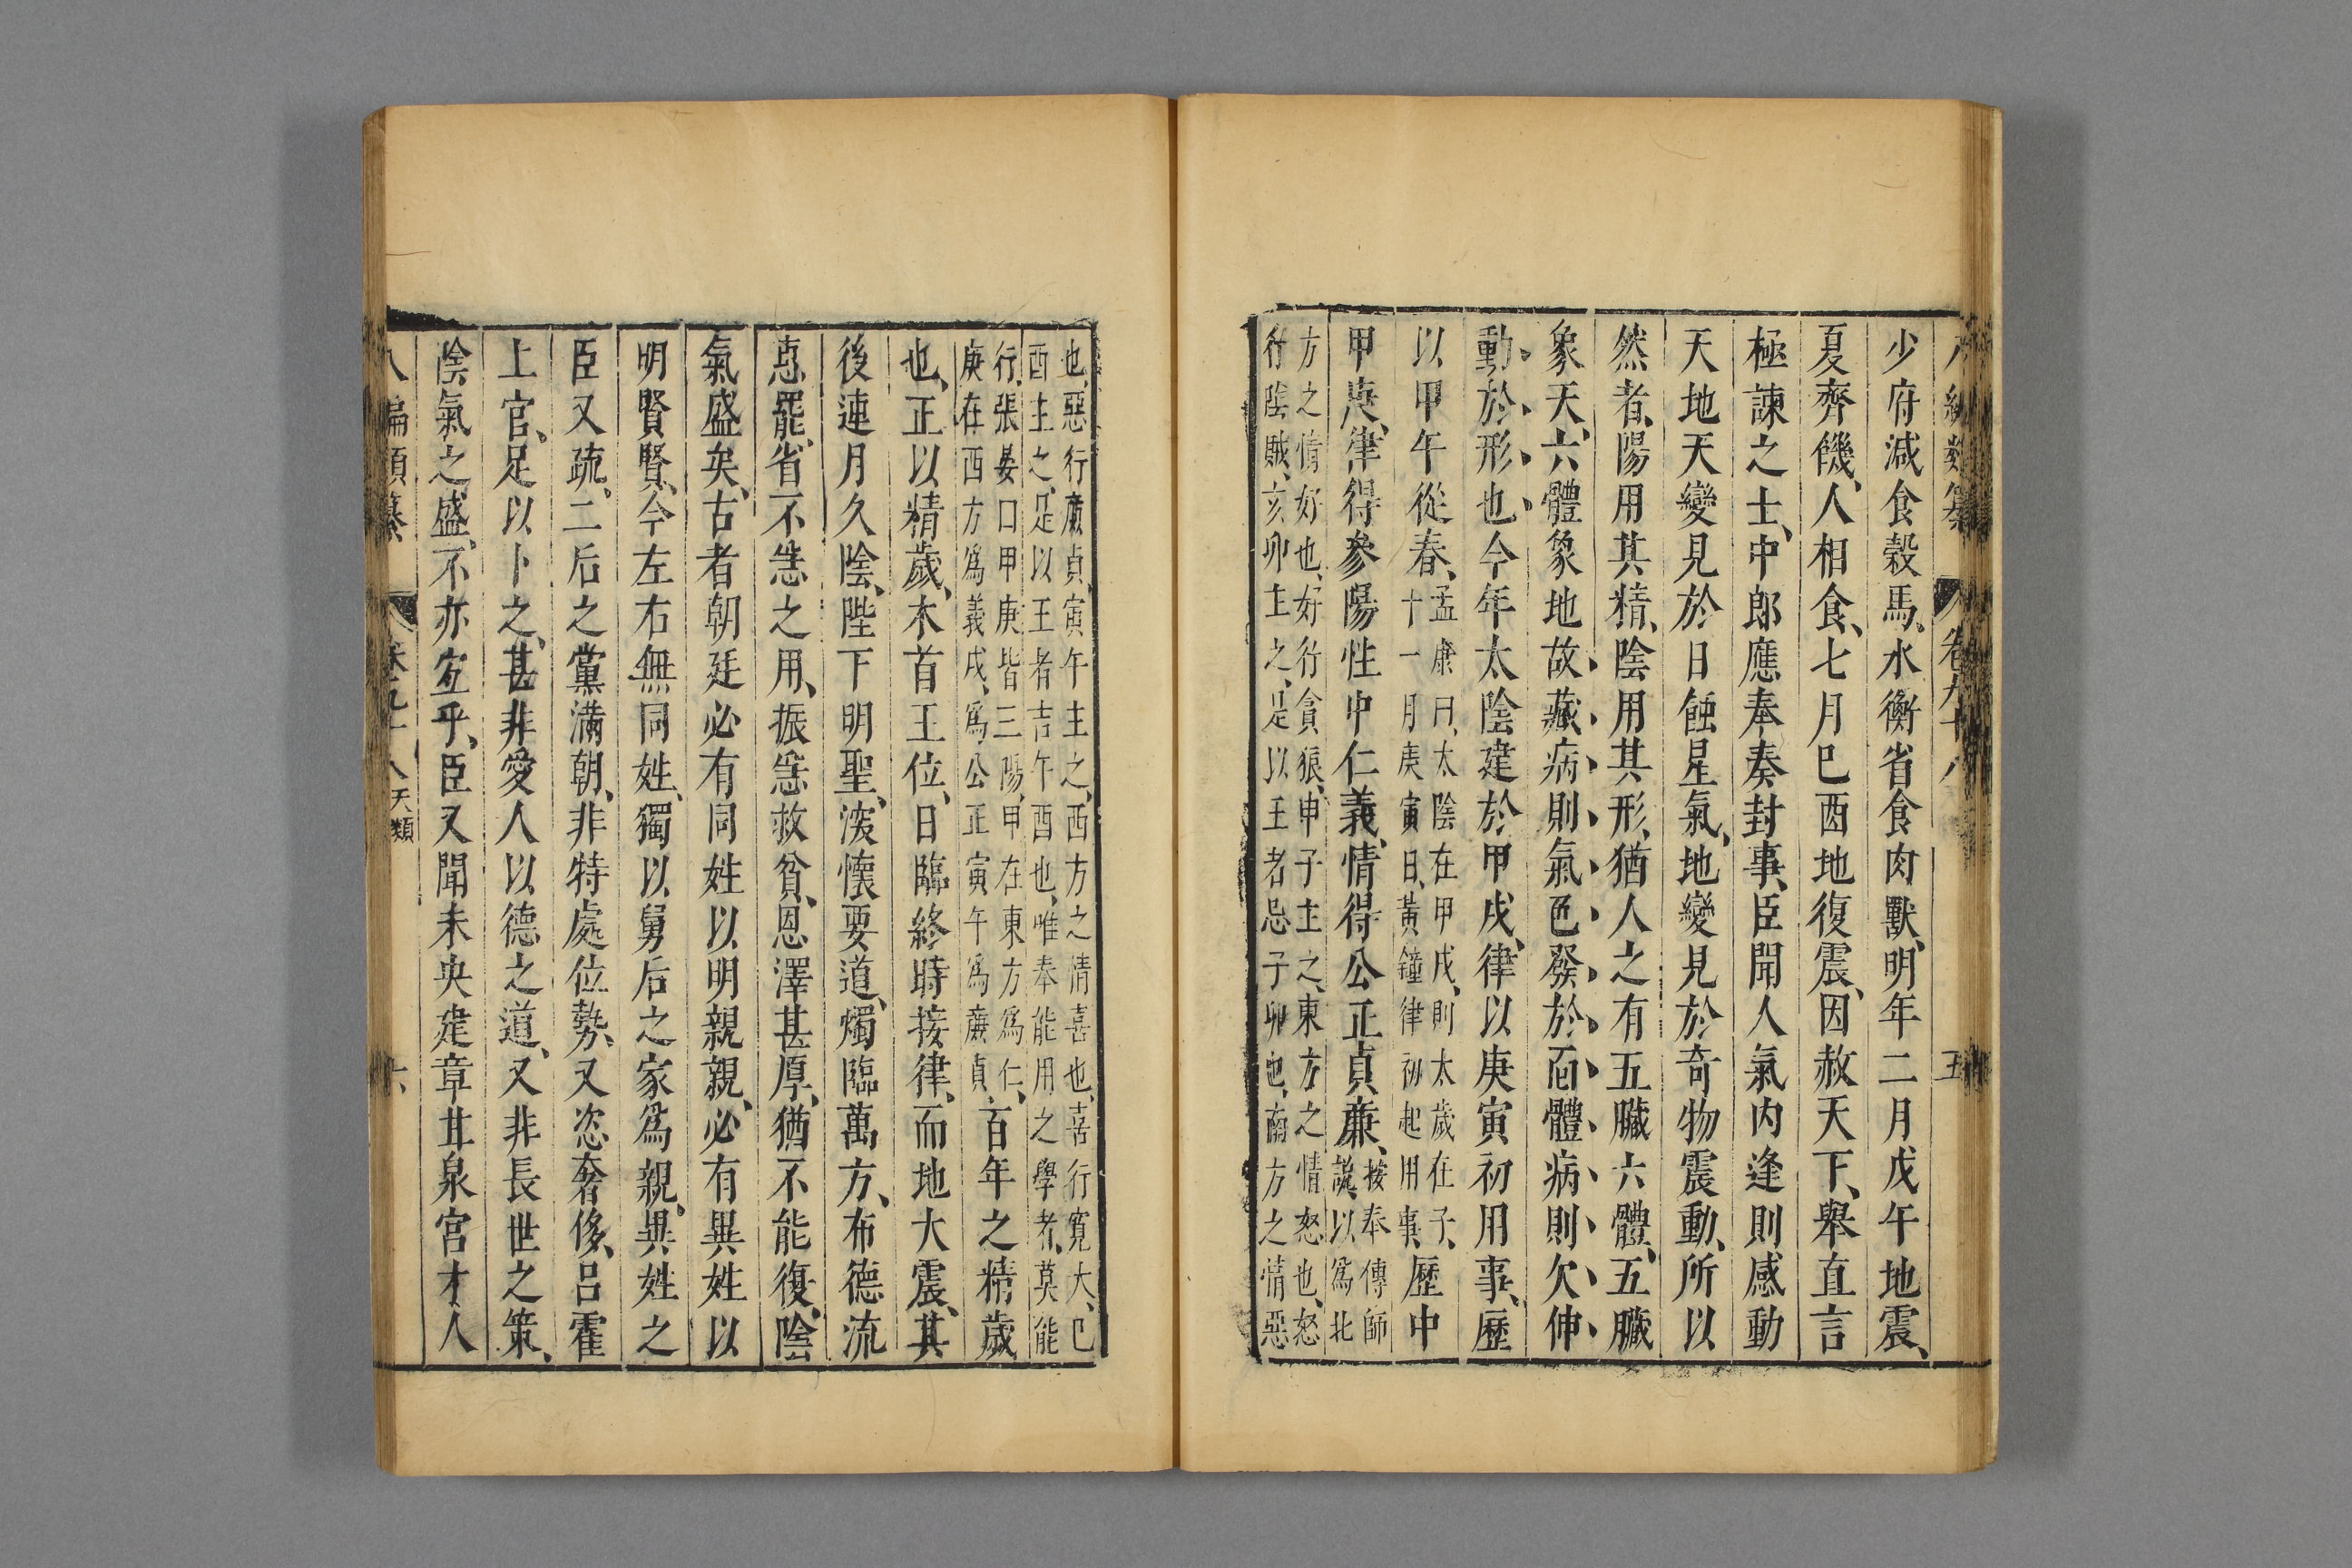 八編類纂 卷九十八 五
少府減食穀馬、水衡省食肉獸、明年二月戊午地震、
夏齊饑、人相食、七月已酉地復震、因赦天下、舉直言
極諫之士、中郎應奉奏封事、臣聞人氣内逢則感動
天地天變見於日蝕星氣、地變見於奇物震動、所以
然者、陽用其精、陰用其形、猶人之有五臟六體、五臟
象天、六體象地故、藏病則氣色發於面、體病則欠伸
動於形也、今年太陰建於甲戌、律以庚寅初用事、歷
以甲午從春、孟康曰、太陰在甲戌、則太歲在子、
十一月庚寅日、黃鐘律初起用事、歷中
甲庚、律得參陽性中仁義、情得公正貞廉、按奉傳師
說、以爲北
方之情好也、好行貪狼、申子主之、東方之情怒也、怒
行陰賊、亥卯主之、足以王者忌子卯也、南方之情惡
也、惡行廉貞、寅午主之、西方之情喜也、喜行寛大、巳
酉主之、足以王者吉午酉也、唯奉能用之學者、莫能
行、張晏曰甲庚皆三陽、甲在東方爲仁、
庚在西方爲義戌、爲公正寅午爲廉貞、百年之精歲
也、正以精歲、木首王位、日臨終時接律、而地大震、其
後連月久陰、陛下明聖、深懷要道、燭臨萬方、布德流
惠、罷省不急之用、振急救貧、恩澤甚厚、猶不能復、陰
氣盛矣、古者朝廷必有同姓以明親親、必有異姓以
明賢賢、今左右無同姓、獨以舅后之家爲親、異姓之
臣又疏、二后之黨滿朝、非特處位勢、又恣奢侈、呂霍
上官、足以卜之、甚非愛人以德之道、又非長世之策、
陰氣之盛、不亦宜乎、臣又聞未央建章甘泉宮才人
八編類纂 卷九十八 天類 六